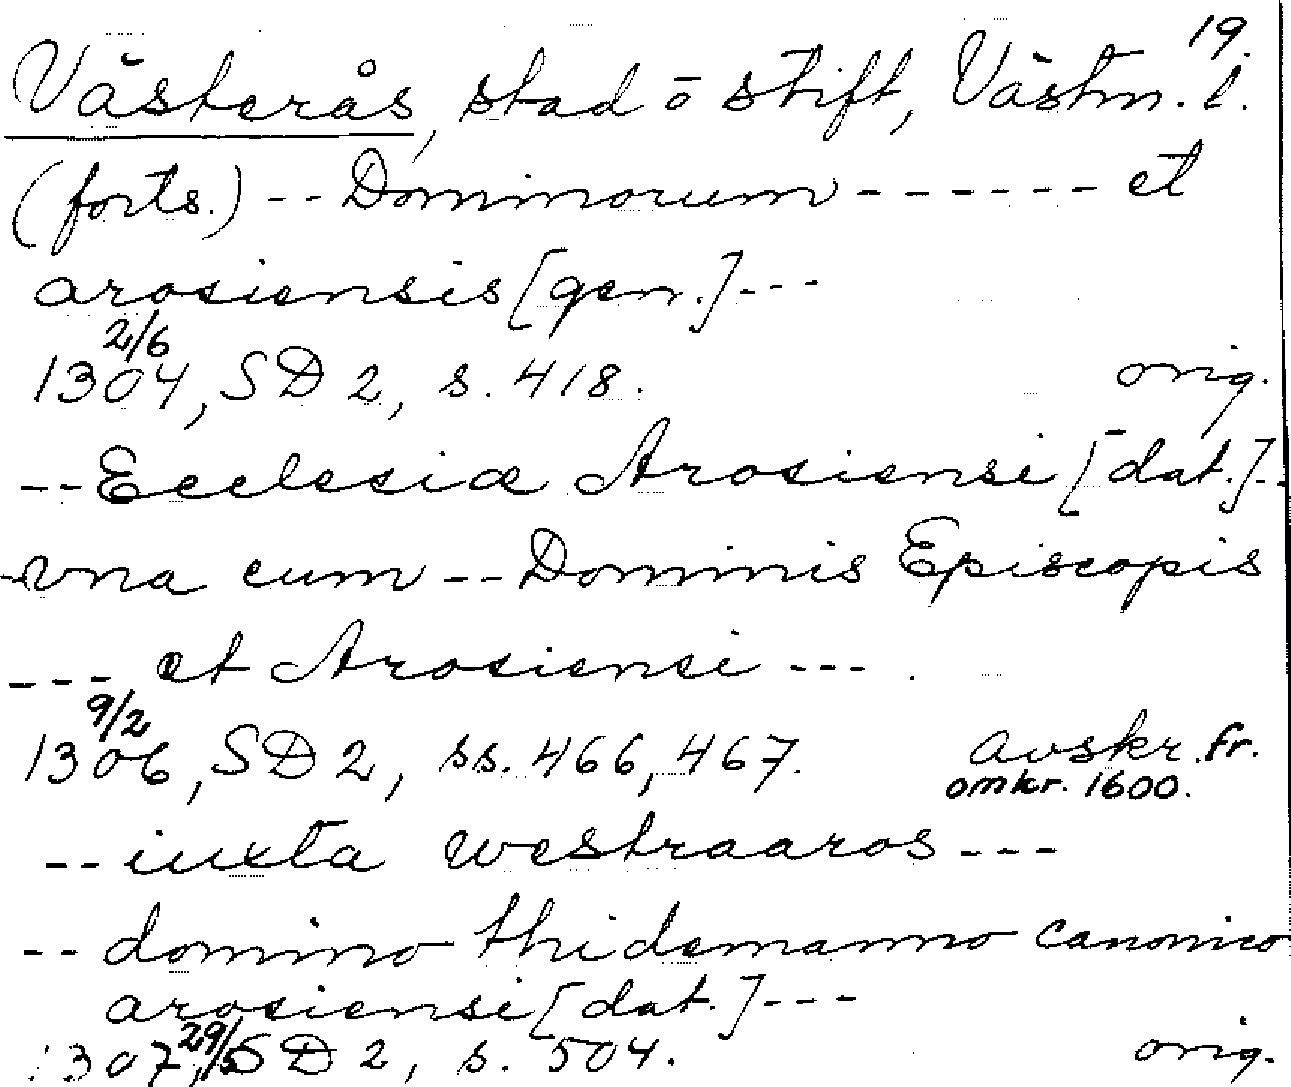 19.
Västerås, stad o stift, Västm. l.
(forts.) -- Dominorum ------ et
arosiensis [gen.] ---
2/6
1304, SD 2, s. 418. orig.
-- Ecclesiæ Arosiensi [dat.] --
vna cum -- Dominis Episcopis
--- et Arosiensi ---.
9/2
1306, SD 2, ss. 466, 467. avskr. fr.
omkr. 1600.
-- iuxta westraaros ---
-- domino thidemanno canonico
arosiensi [dat.] ---
29/5
1307, SD 2, s. 504. orig.